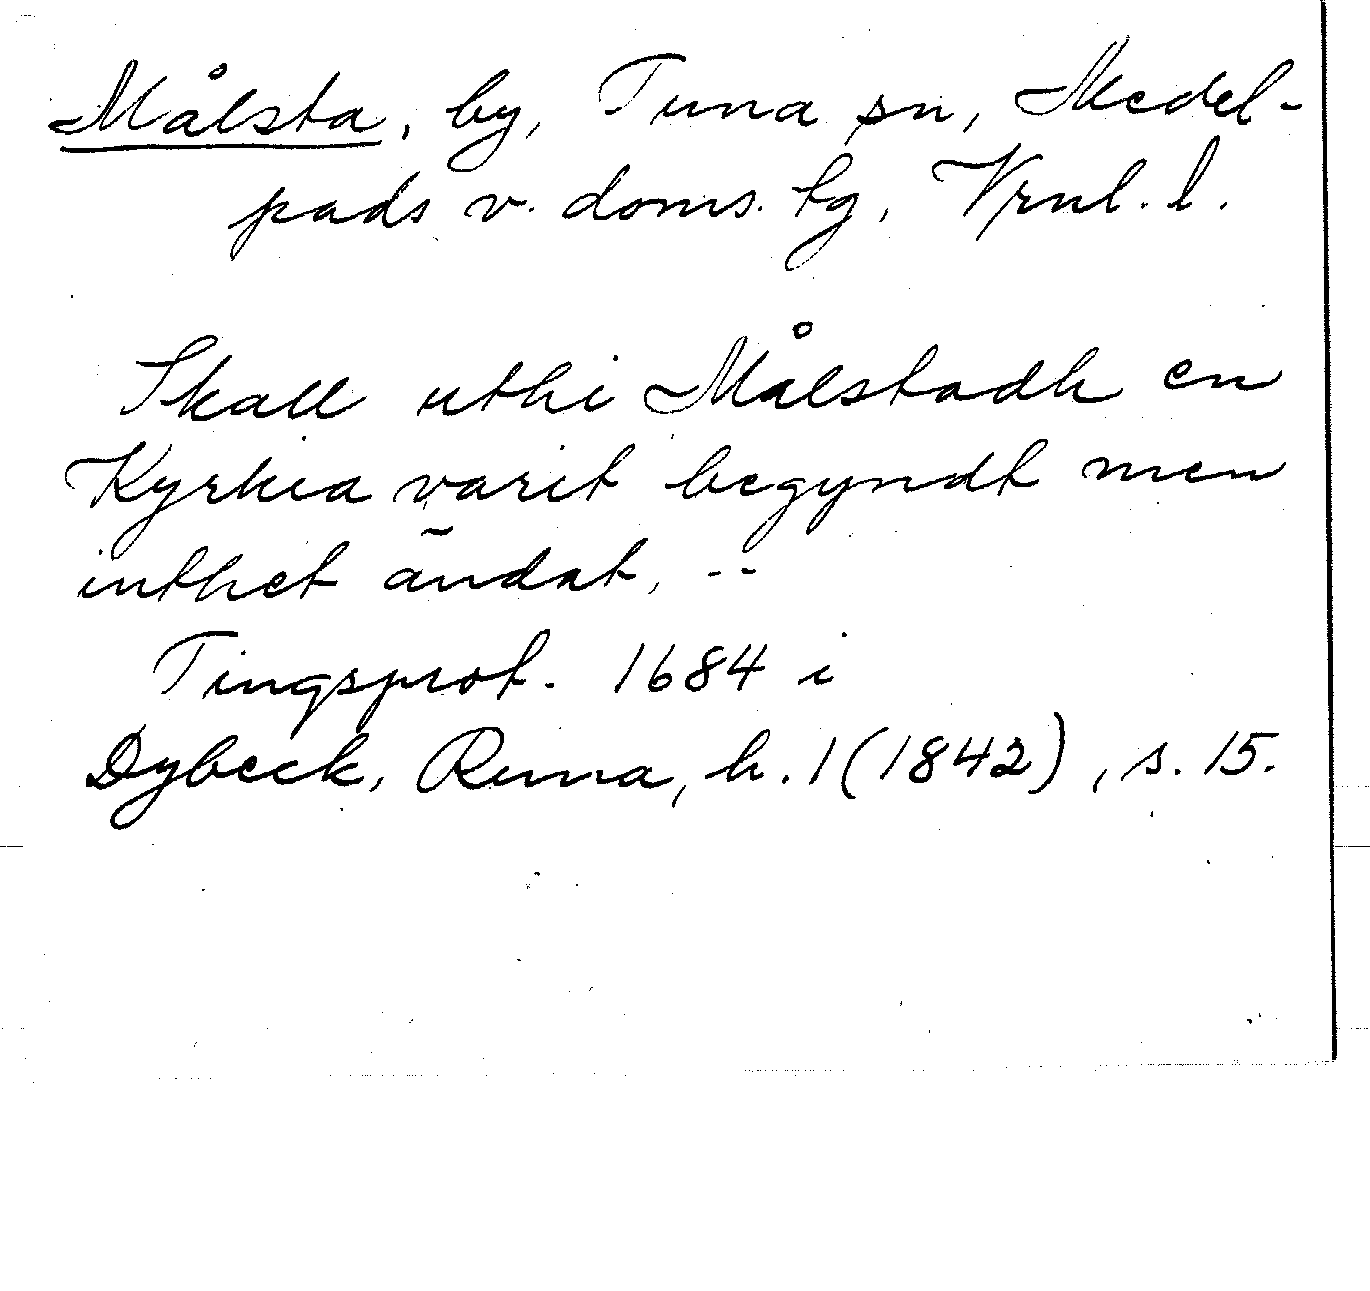 Målsta, by, Tuna sn, Medel-
pads v. doms. tg, Vrnl. l.
Skall uthi Målstadh en
Kyrkia varit begyndt men
inthet ändat, --
Tingsprot. 1684 i
Dybeck, Runa, h. 1 (1842), s. 15.